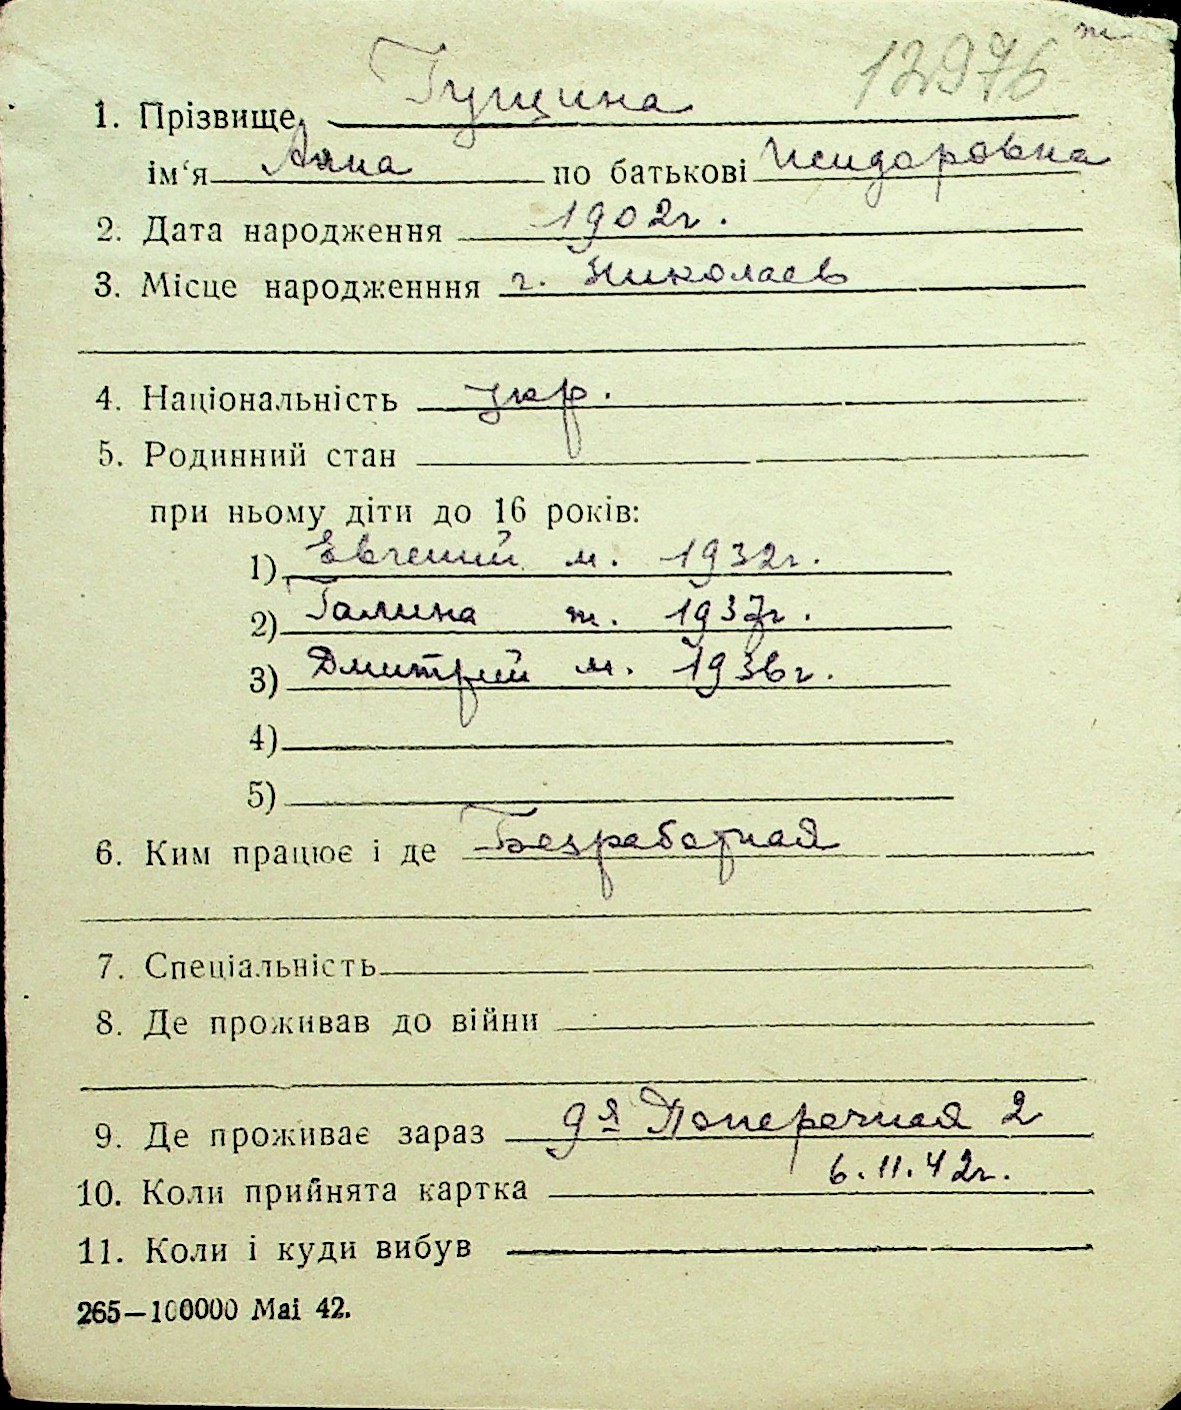 12976 ж
1. Прізвище Гущина
ім'я Анна по батькові Исидоровна
2. Дата народження 1902г.
3. Місце народженння г. Николаев
4. Національність укр.
5. Родинний стан
при ньому діти до 16 років:
1) Евгений м. 1932г.
2) Галина ж. 1937г.
3) Дмитрий м. 1936г.
4)
5)
6. Ким працює і де Безработная
7. Спеціальність
8. Де проживав до війни
9. Де проживає зараз 9я Поперечная 2
10. Коли прийнята картка 6.11.42г.
11. Коли і куди вибув
265—100000 Mai 42.